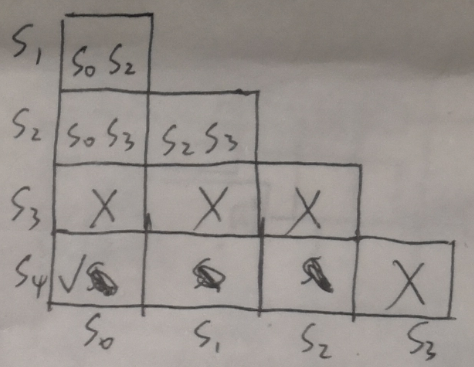 S1 S0 S2
S2 S0 S3 S2 S3
S3 X X X
S4 √ X
S0 S1 S2 S3